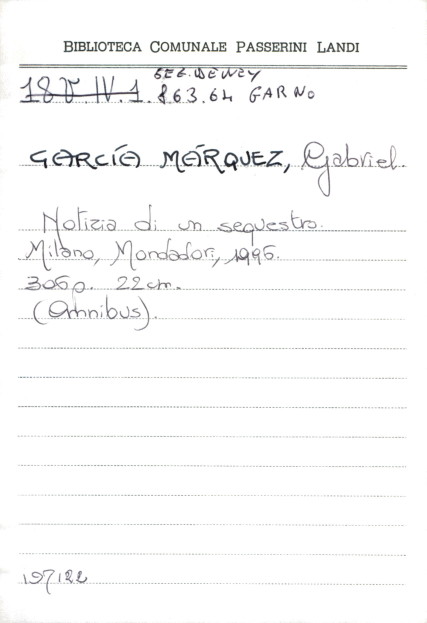 BIBLIOTECA COMUNALE PASSERINI LANDI
SEG. DEWEY
18 V. IV. 1. 863.64 GAR NO
GARCÍA MÁRQUEZ, Gabriel.
Notizia di un sequestro.
Milano, Mondadori, 1996.
306 p. 22 cm.
(Omnibus).
197122